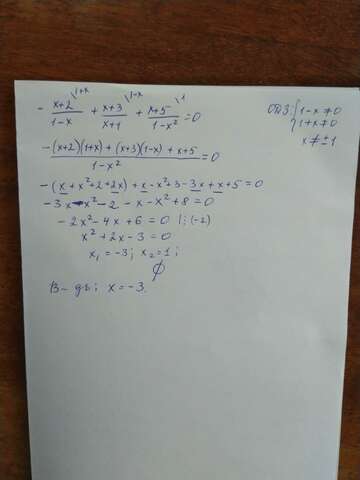 - \frac{x+2}{1-x}^{\1+x} + \frac{x+3}{x+1}^{\1-x} + \frac{x+5}{1-x^2}^{\1} = 0
ОДЗ: { 1-x ≠ 0
1+x ≠ 0
x ≠ ± 1
\frac{-(x+2)(1+x) + (x+3)(1-x) + x+5}{1-x^2} = 0
-(x + x² + 2 + 2x) + x - x² + 3 - 3x + x + 5 = 0
-3x - x² - 2 - x - x² + 8 = 0
-2x² - 4x + 6 = 0 | : (-2)
x² + 2x - 3 = 0
x₁ = -3; x₂ = 1;
∅
В-дь: x = -3.